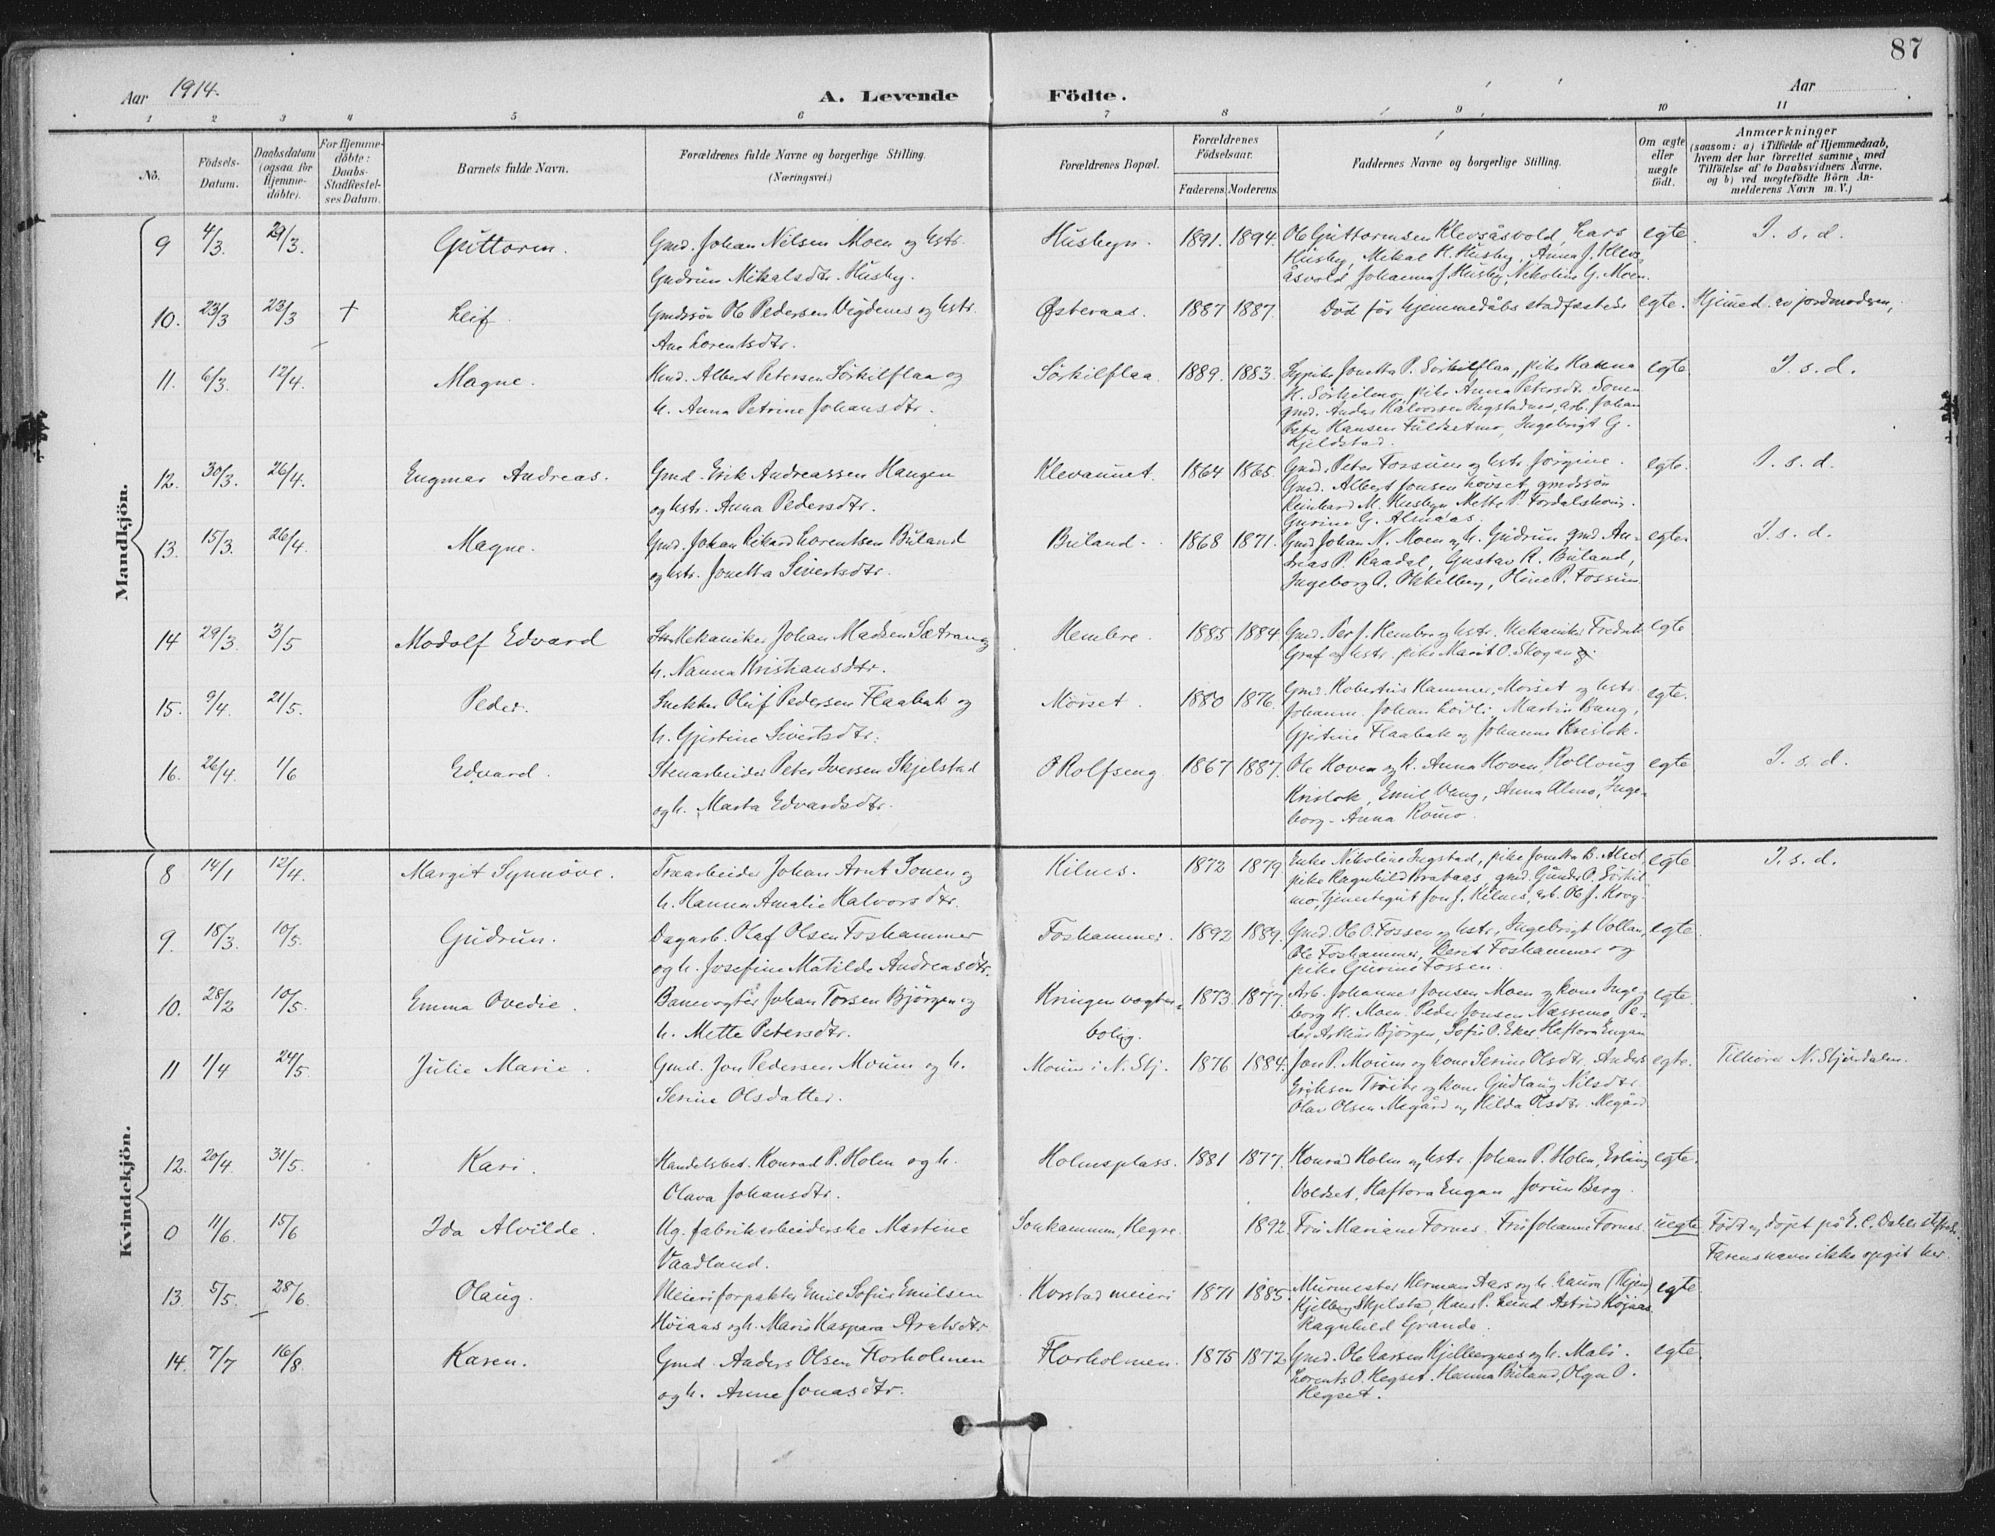 87
Aar 1914. A. Levende Födte. Aar
1 2 3 4 5 6 7 8 9 10 11
No. Födsels-Datum. Daabsdatum (ogsaa for Hjemmedöbte). For Hjemmedöbte: Daabs-Stadfæstelses Datum. Barnets fulde Navn. Forældrenes fulde Navne og borgerlige Stilling. (Næringsvei.) Forældrenes Bopæl. Forældrenes Födselsaar. Faderens. Moderens. Faddernes Navne og borgerlige Stilling. Om ægte eller uægte födt. Anmærkninger (saasom: a) i Tilfælde af Hjemmedaab, hvem der har forrettet samme, med Tilföielse af to Daabsvidners Navne, og b) ved uægtefödte Börn Anmelderens Navn m. V.)
Mandkjön.
9 4/3 29/3. Guttorm. Gmd. Johan Nilsen Moen og hstr. Husbyn. 1891. 1894. Ole Guttormsen Klevsåsvold, Lars egte. I. s. d.
Gudrun Mikalsdtr. Husby. Husby, Mikal H. Husby, Anna J. Klevs-
åsvold Johanna J. Husby, Nikoline G. Moen.
10. 23/3 23/3 + Leif. Gmdssön Ole Pedersen Vigdenes og hstr. Østeraas. 1887 1887. Død før hjemmedåbs stadfæstelse egte. Hjemmed. av jordmodren,
Ane Lorentsdtr.
11. 6/3. 12/4. Magne. Kmd. Albert Petersen Sörkilflaa og Sörkilflaa. 1889. 1883. Jonetta P. Sörkilflaa, pike Hanna egte. I. s. d.
h. Anna Petrine Johansdtr. H. Sörkilmo, pike Anna Petersdtr. Sonen
gmd. Anders Halvorsen Ingstadnes, arb. Johan
Peter Hansen Fuldsetmo, Ingebrigt G.
Kjeldstad.
12. 30/3. 26/4. Engmar Andreas. Gmd. Erik Andreassen Haugen Klevannet. 1864 1865. Gmd. Peter Forsum og hstr Jørgine. egte. I. s. d.
og hstr. Anna Pedersdtr. Gmd. Albert Jonsen Løvset, gmdssøn
Reinhard M. Husbyn Mette P. Fordalshaug.
Gurine G. Almaas.
13. 15/3. 26/4. Magne. Gmd. Johan Rikard Lorentsen Buland Buland. 1868 1871. Gmd Johan N. Moen og h. Gudrun gmd. An- egte. I. s. d.
og hstr. Jonetta Sivertsdtr. dreas P. Raadal, Gustav R. Buland,
Ingeborg O. Okkelberg, Oline P. Fossum
14 29/3. 3/5 Modolf Edvard Mekaniker Johan Madsen Sætran og Hembre. 1885 1884. Gmd. Per J. Hembre og hstr. Mekaniker Fredrik egte
h. Nanna Kristiansdtr. Graf og hstr. pike Marit O. Skogan
15. 9/4. 21/5. Peder. Snekker Oluf Pedersen Flaabak og Mörset. 1880 1876. Gmd. Robertus Hammer, Mörset og hstr. egte.
h. Gjertine Sivertsdtr. Johanna. Johan Lövli Martin Bang,
Gjertine Flaabak og Johanna Krislok.
16. 26/4. 1/6 Edvard. Stenarbeider Peter Iversen Skjelstad Ø Rolfseng. 1867 1887. Ole Hoven og h. Anna Hoven, Rollaug egte I. s. d.
og h. Marta Edvardsdtr. Krislok, Emil Vang, Anna Almo, Inge-
borg Anna Romo.
Kvindekjön.
8 14/1 12/4. Margit Synnöve. Træarbeider Johan Arnt Sonen og Kilnes. 1872 1879. Enke Nikoline Ingstad, pike Jonetta B. Alset egte I. s. d.
h. Hanna Amalie Halvorsdtr. pike Ragnhild Brataas gmd. Gunder O. Sörkil-
mo, tjenestegut Jon J. Kilnes, arb. Ole J. Krog.
9. 18/3. 10/5. Gudrun. Dagarb. Olaf Olsen Foshammer Foshammer. 1892 1889. Gmd. Ole O. Fossen og hstr, Ingebrigt Vollan, egte.
og h. Josefine Matilde Andreasdtr. Ole Foshammer, Berit Foshammer og
pike Gurine Fossen.
10. 28/2 10/5. Emma Ovedie. Banevogter Johan Torsen Bjørgen og Kringen vogter- 1873. 1877. Arb. Johannes Jonsen Moen og kone Inge- egte.
h. Mette Petersdtr. bolig. borg H. Moen. Peder Jonsen Næssemo, Pe-
der Arthur Bjørgen, Sofie O. Eker Haftora Engan
11 1/4 24/5. Julie Marie. Gmd. Jon Pedersen Moum og h. Moum i N. Stj. 1876 1884. Jon P. Moum og kone Serine Olsdtr. Anders egte. Tilhører N. Stjørdalen.
Serine Olsdatter. Eriksen Trøite og kone Gudlaug Nilsdtr.
Olav Olsen Megård og Hilda Olsdtr. Megård.
12. 20/4. 31/5. Kari. Handelsbet. Konrad P. Holm og h. Holmsplass. 1881 1877. Konrad Holm og hstr. Johan P. Holm, Erling egte.
Olava Johansdtr. Voldset, Haftora Engan, Jorun Berg.
0 11/6. 15/6 Ida Alvilde. Ug. fabrikarbeiderske Martine Sonhammeren, Hegre. 1892 Fru Mariane Fornes. Fru Johanna Fornes. uegte Født og døpt på E. C. Dahls stiftelse.
Vaadland. Farens navn ikke opgit her.
13. 5/5. 28/6. Olaug. Meieriforpakter Emil Sofus Emilsen Korstad meieri 1871 1885. Murmester Herman Aars og h. Laura (Hjem) egte
Höiaas og h. Marie Kaspara Arntsdtr. Kjelberg Skjelstad, Hans P. Lund Astrid Höiaas
Ragnhild Grande.
14. 7/7 16/8. Karen. Gmd. Anders Olsen Florholmen Florholmen. 1875 1872. Gmd. Ole Larsen Kjelbergnes og h. Mali. egte.
og h. Anne Jonasdtr. Lorents O. Hegset. Hanna Buland, Olga O.
Hegset.